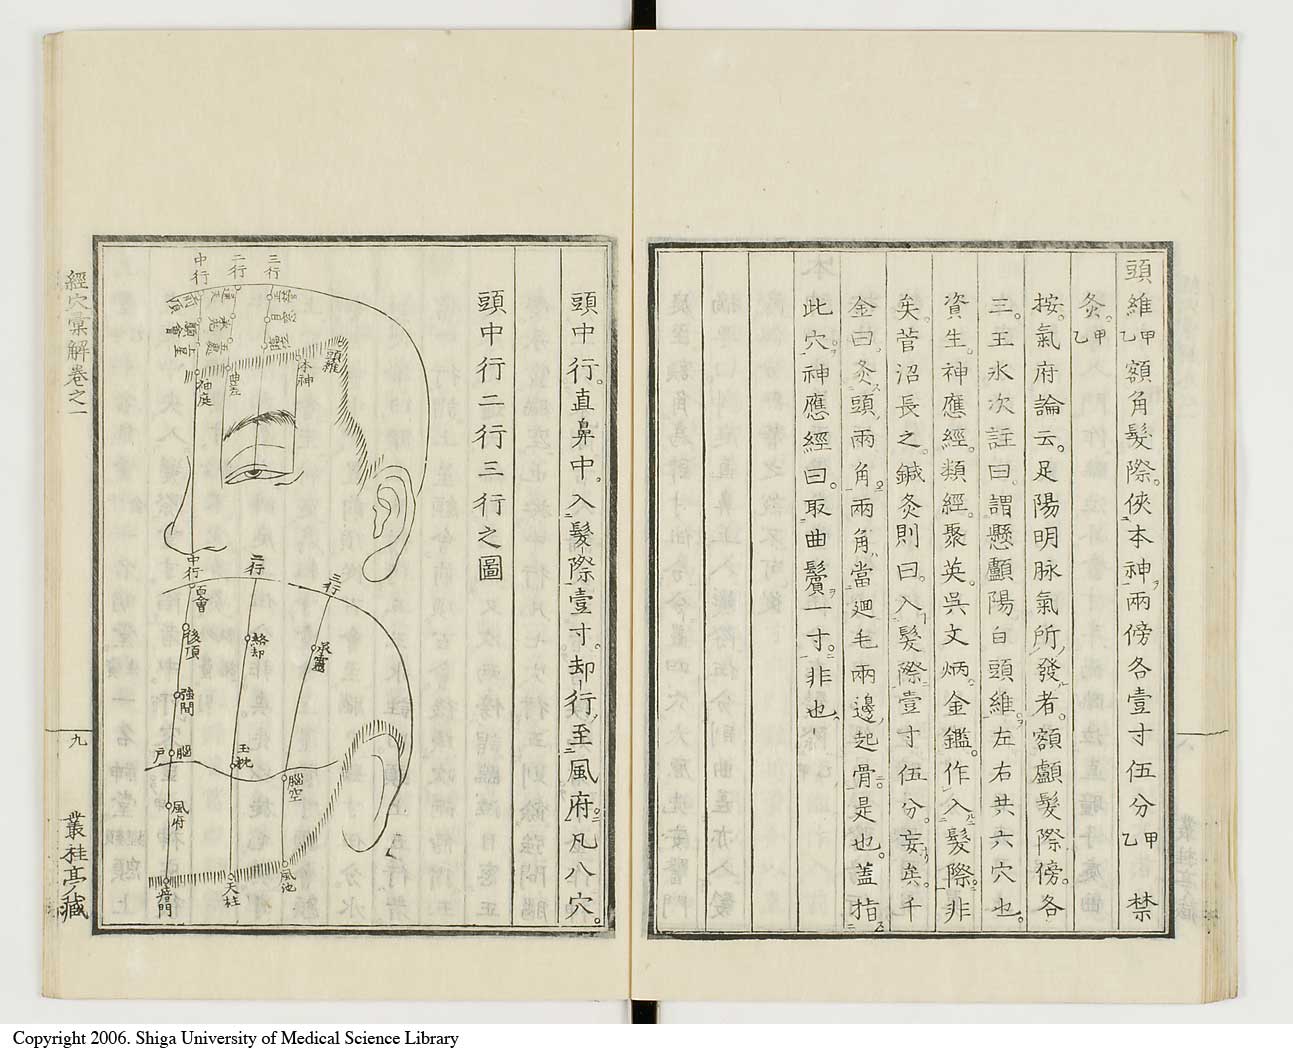 頭維甲乙額角髮際。俠本神兩傍各壹寸伍分甲乙禁
灸。甲乙
按。氣府論云。足陽明脉氣所發者。額顱髮際傍。各
三。王氷次註曰。謂懸顱陽白頭維。左右共六穴也。
資生。神應經。類經。聚英。吳文炳。金鑑。作入髮際。非
矣。菅沼長之。鍼灸則曰。入髮際壹寸伍分。妄矣。千
金曰。灸頭兩角。兩角當廻毛兩邊起骨。是也。蓋指
此穴。神應經曰。取曲鬢一寸。非也
頭中行。直鼻中。入髮際壹寸。却行至風府。凡八穴。
頭中行二行三行之圖
三行
二行
中行
正營
目窻
臨泣
通天
承光
五處
前頂
顖會
上星
頭維
本神
曲差
神庭
三行
二行
中行
百會
後頂
強間
腦戶
風府
瘂門
絡却
玉枕
天柱
承靈
腦空
風池
經穴彙解卷之一
九
叢桂亭藏
Copyright 2006. Shiga University of Medical Science Library